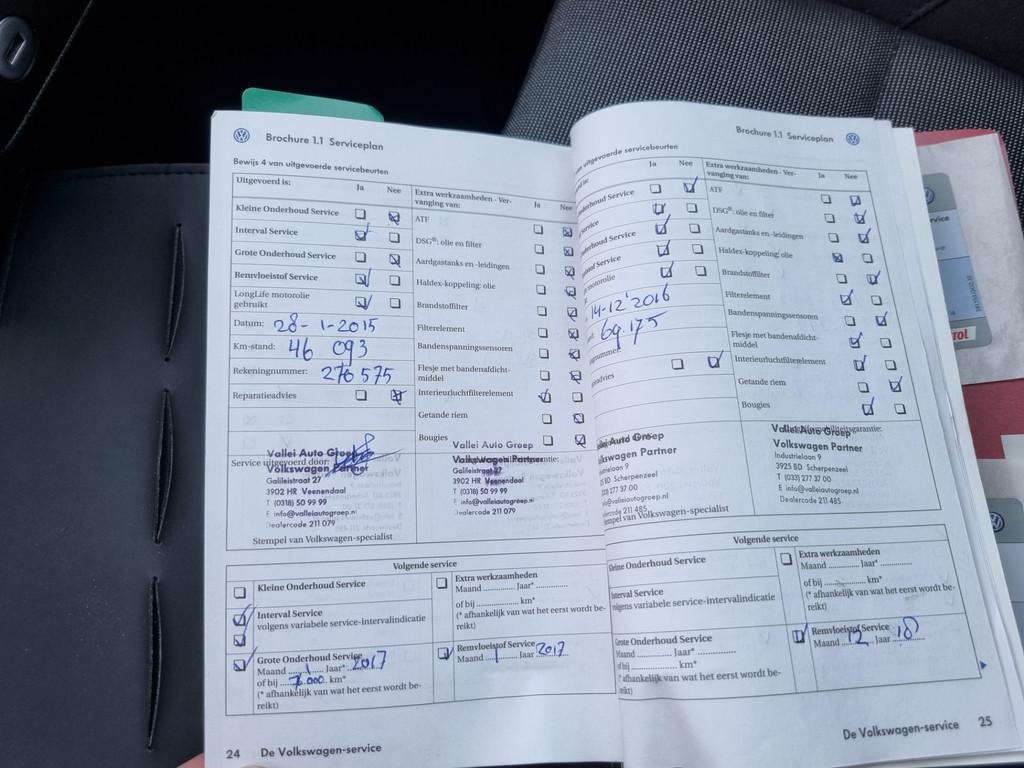 Brochure 1.1 Serviceplan
Bewijs 4 van uitgevoerde servicebeurten
Uitgevoerd is:
Ja
Nee
Kleine Onderhoud Service
Interval Service
Grote Onderhoud Service
Remvloeistof Service
LongLife motorolie
gebruikt
Datum: 28-1-2015
Km-stand: 46 093
Rekeningnummer: 276 575
Reparatieadvies
Extra werkzaamheden - Ver-
vanging van:
Ja
Nee
ATF
DSG®: olie en filter
Aardgastanks en -leidingen
Haldex-koppeling: olie
Brandstoffilter
Filterelement
Bandenspanningssensoren
Flesje met bandenafdicht-
middel
Interieurluchtfilterelement
Getande riem
Bougies
Service uitgevoerd door:
Vallei Auto Groep
Volkswagen Partner
Galileistraat 27
3902 HR Veenendaal
T (0318) 50 99 99
E info@valleiautogroep.nl
Dealercode 211 079
Stempel van Volkswagen-specialist
Vallei Auto Groep
Volkswagen Partner
Galileistraat 27
3902 HR Veenendaal
T (0318) 50 99 99
E info@valleiautogroep.nl
Dealercode 211 079
Volgende service
Kleine Onderhoud Service
Interval Service
volgens variabele service-intervalindicatie
Grote Onderhoud Service
Maand 1 Jaar* 2017
of bij 76.000 km*
(* afhankelijk van wat het eerst wordt be-
reikt)
Extra werkzaamheden
Maand Jaar*
of bij km*
(* afhankelijk van wat het eerst wordt be-
reikt)
Remvloeistof Service
Maand 1 Jaar 2017
24 De Volkswagen-service
Brochure 1.1 Serviceplan
uitgevoerde servicebeurten
Ja
Nee
Service
Service
Service
motorolie
14-12'2016
69.175
Extra werkzaamheden - Ver-
vanging van:
Ja
Nee
ATF
DSG®: olie en filter
Aardgastanks en -leidingen
Haldex-koppeling: olie
Brandstoffilter
Filterelement
Bandenspanningssensoren
Flesje met bandenafdicht-
middel
Interieurluchtfilterelement
Getande riem
Bougies
Auto Groep
Volkswagen Partner
Industrielaan 9
3925 BD Scherpenzeel
(033) 277 37 00
info@valleiautogroep.nl
Dealercode 211 485
Stempel van Volkswagen-specialist
Vallei Auto Groep
Volkswagen Partner
Industrielaan 9
3925 BD Scherpenzeel
T (033) 277 37 00
E info@valleiautogroep.nl
Dealercode 211 485
Volgende service
Kleine Onderhoud Service
Interval Service
volgens variabele service-intervalindicatie
Grote Onderhoud Service
Maand Jaar*
of bij km*
(* afhankelijk van wat het eerst wordt be-
reikt)
Extra werkzaamheden
Maand Jaar*
of bij km*
(* afhankelijk van wat het eerst wordt be-
reikt)
Remvloeistof Service
Maand 12 Jaar 18
De Volkswagen-service 25